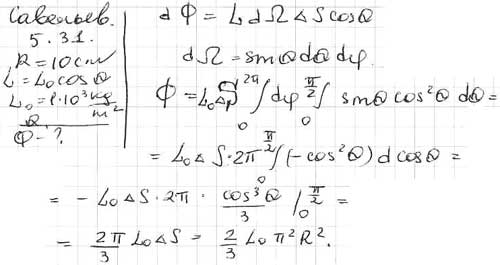 Савельев.
5.31.
R = 10 см
L = L₀ cos θ
L₀ = 1·10³ кд/м²
Φ - ?
dΦ = L dΩ ΔS cos θ
dΩ = sin θ dθ dφ.
Φ = L₀ ΔS ∫₀^{2π} dφ ∫₀^{π/2} sin θ cos² θ dθ =
= L₀ ΔS · 2π ∫₀^{π/2} (-cos² θ) d cos θ =
= - L₀ ΔS · 2π · cos³ θ / 3 |₀^{π/2} =
= 2π/3 L₀ ΔS = 2/3 L₀ π² R².